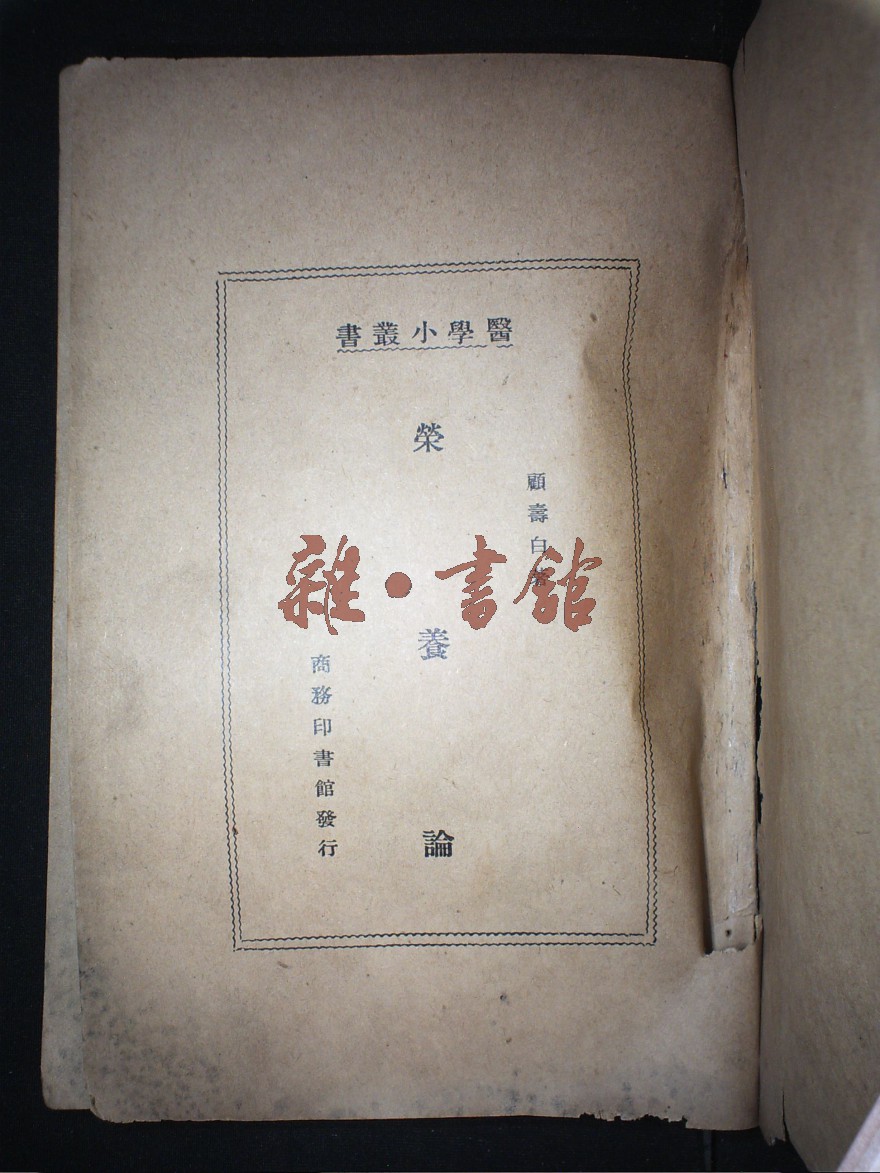 醫學小叢書
顧壽白著
榮養論
商務印書館發行
雜·書館